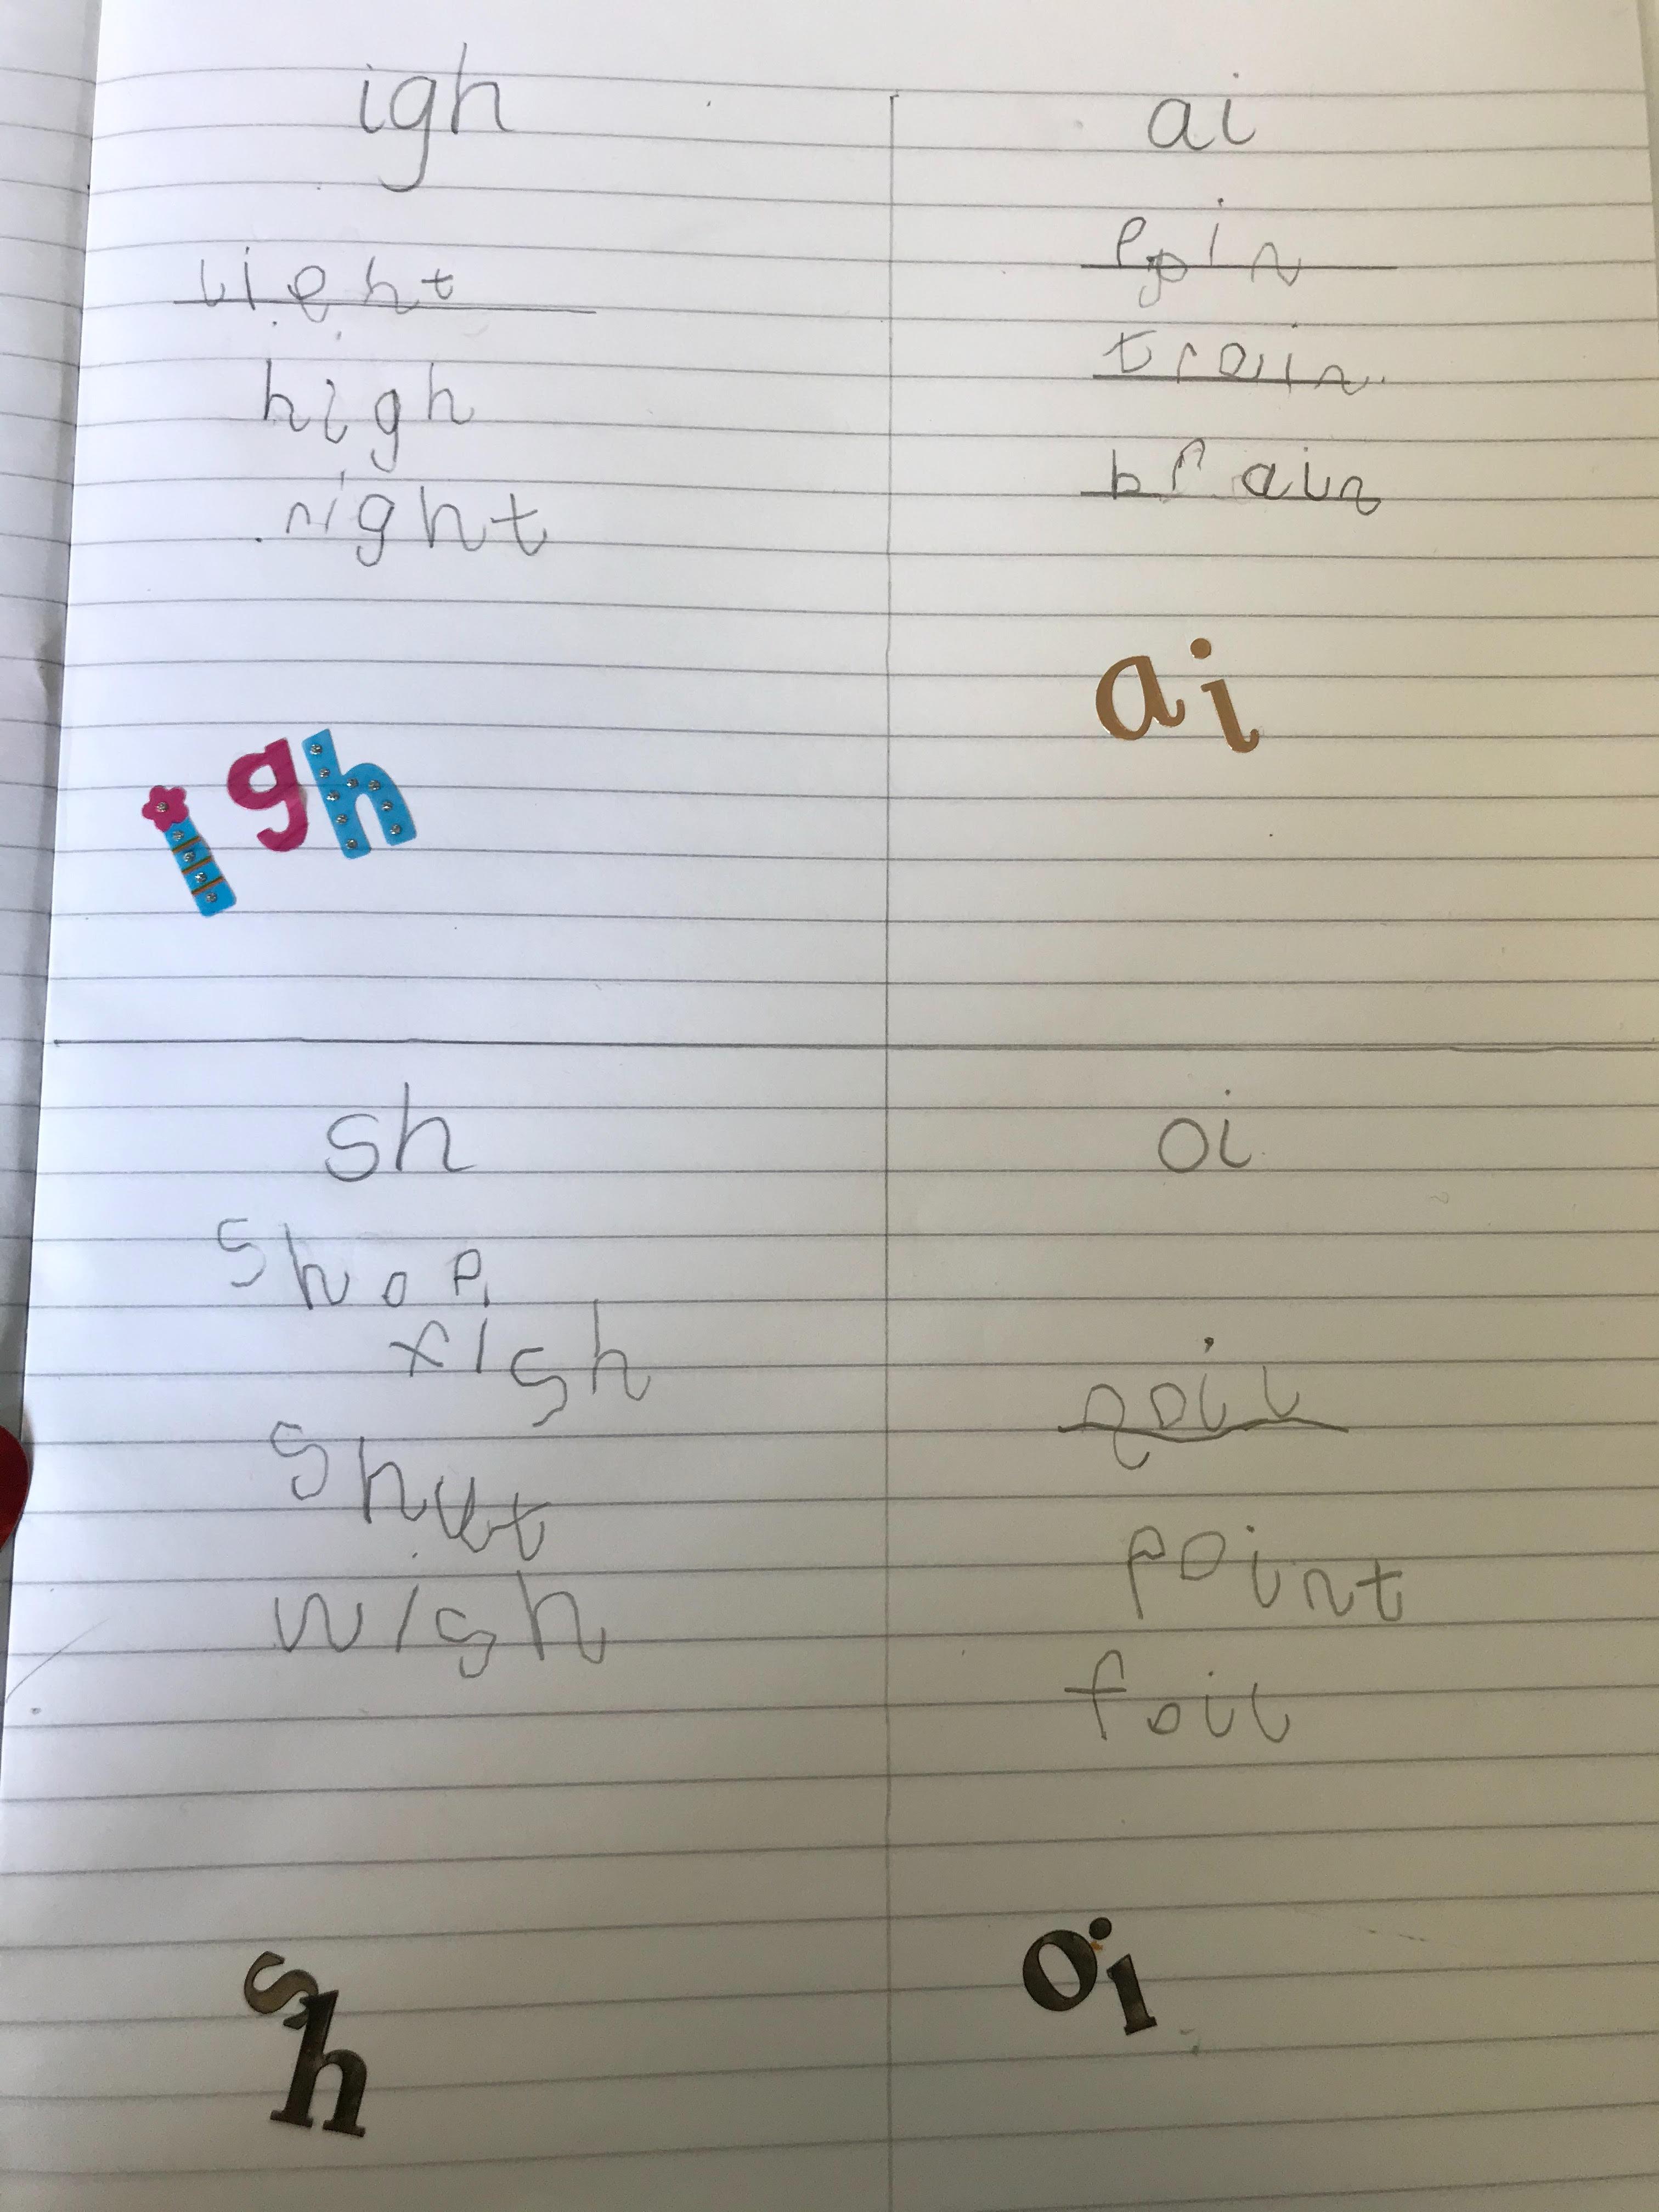 igh
light
high
night
igh
ai
pain
train
brain
ai
sh
shop
fish
shut
wish
sh
oi
point
foil
oi